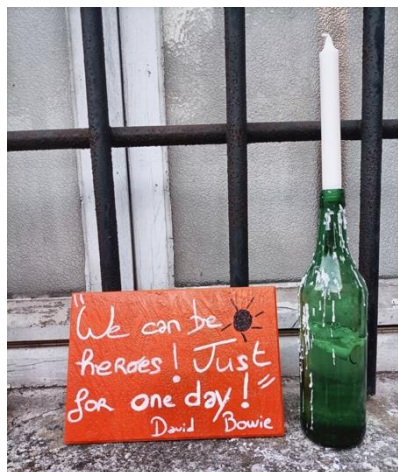 "We can be
heroes! Just
for one day!"
David Bowie